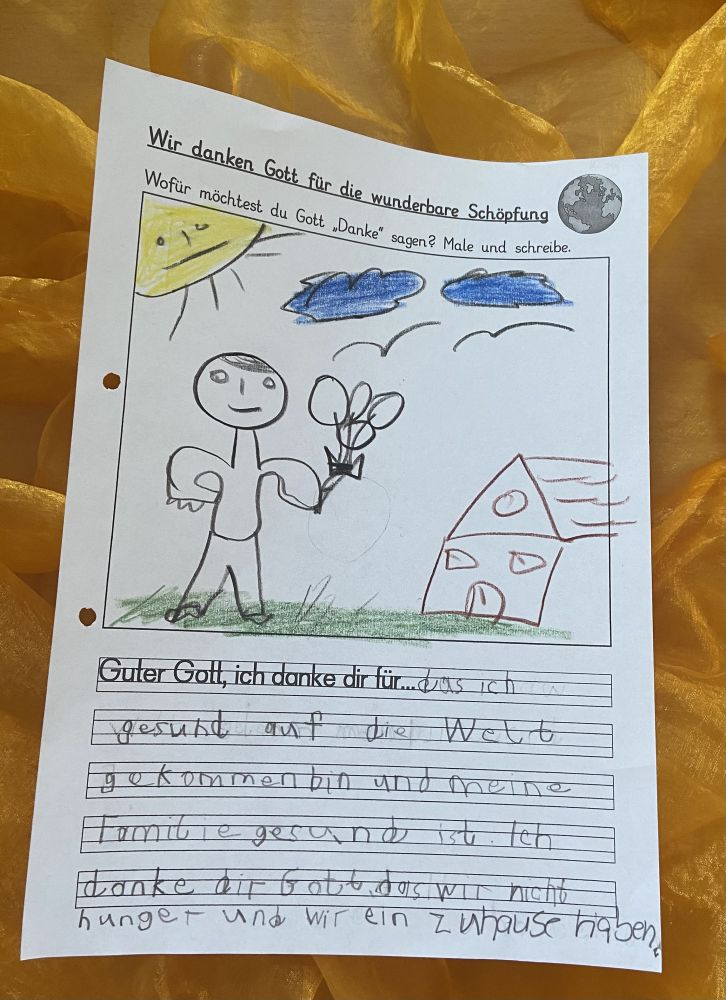 Wir danken Gott für die wunderbare Schöpfung
Wofür möchtest du Gott „Danke“ sagen? Male und schreibe.
Guter Gott, ich danke dir für... das ich
gesund auf die Welt
gekommen bin und meine
Familie gesund ist. Ich
danke dir Gott das wir nicht
hunger und wir ein zuhause haben.